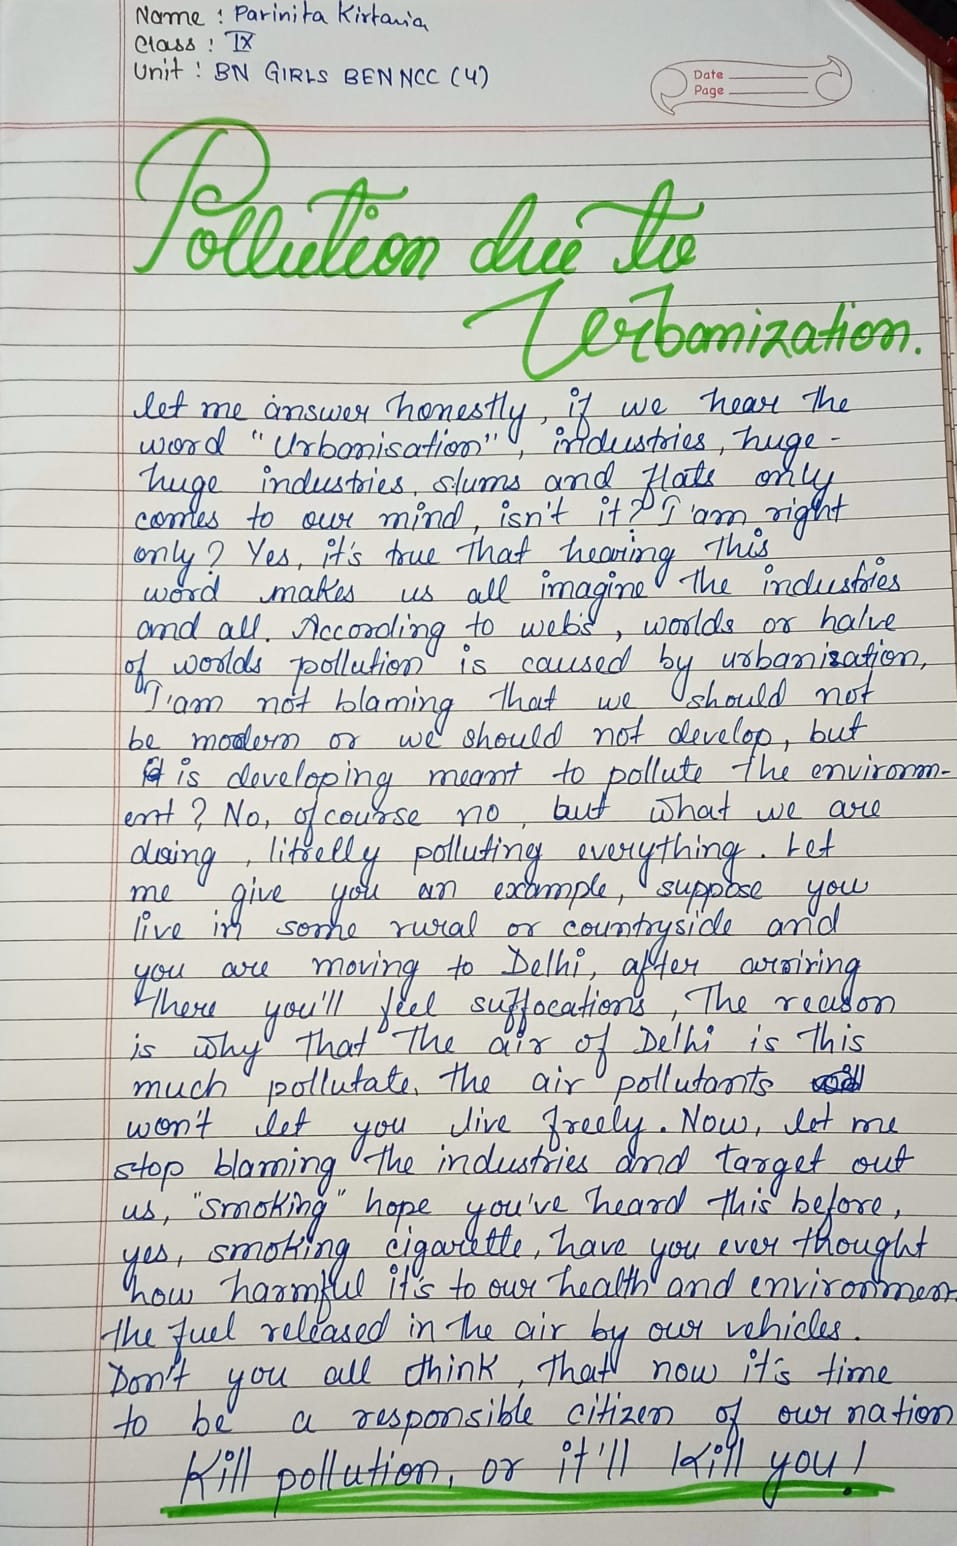 Name : Parinita Kirtania
Class : IX
Unit : BN GIRLS BEN NCC (4)
Date
Page
Pollution due to
Urbanization.
let me answer honestly, if we hear the
word "Urbanisation", industries, huge-
huge industries, slums and flats only
comes to our mind, isn't it? I'am right
only? Yes, it's true that hearing this
word makes us all imagine the industries
and all. According to web's, worlds or halve
of worlds pollution is caused by urbanisation,
I'am not blaming that we should not
be modern or we should not develop, but
is developing meant to pollute the environm-
ent? No, ofcourse no, but what we are
doing, littrelly polluting everything. Let
me give you an example, suppose you
live in some rural or countryside and
you are moving to Delhi, after arriring
there you'll feel suffocations, The reason
is why that the air of Delhi is this
much pollutate, the air pollutants
won't let you live freely. Now, let me
stop blaming the industries and target out
us, "smoking" hope you've heard this before,
yes, smoking cigarette, have you ever thought
how harmful it's to our health and environmen
the fuel released in the air by our vehicles.
Don't you all think, that now it's time
to be a responsible citizen of our nation
Kill pollution, or it'll kill you!